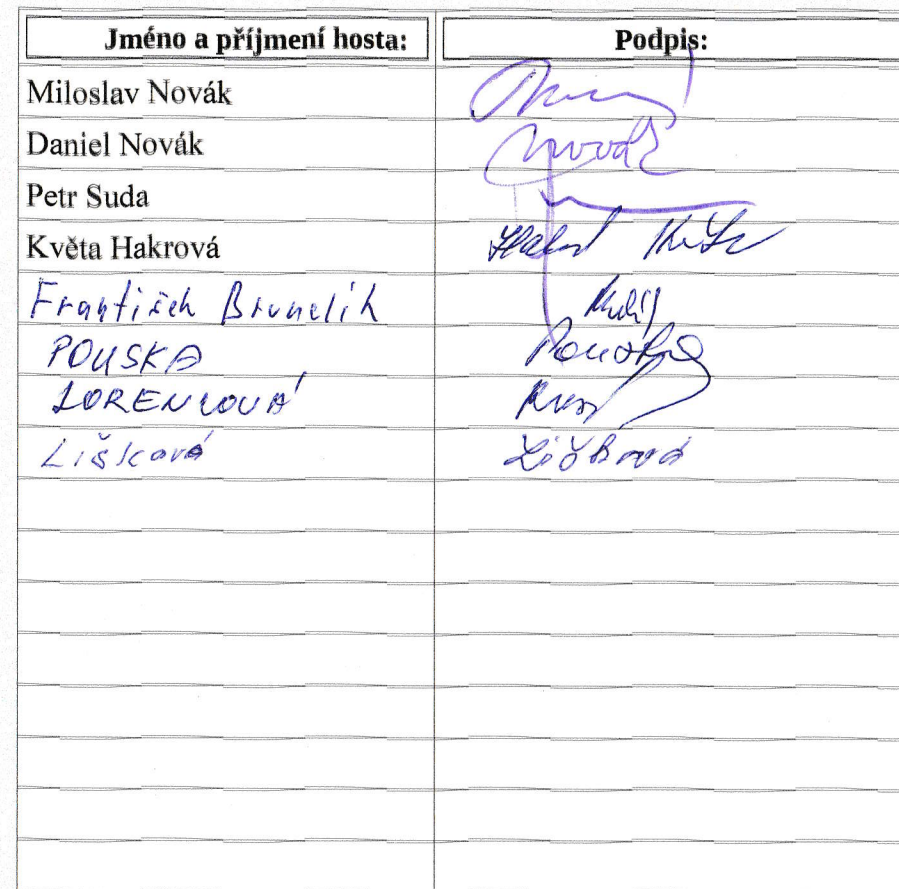 Jméno a příjmení hosta: Podpis:
Miloslav Novák
Daniel Novák Novák
Petr Suda
Květa Hakrová
František Brunclík
POUSKA
LORENCOVÁ
Lišková Lišková